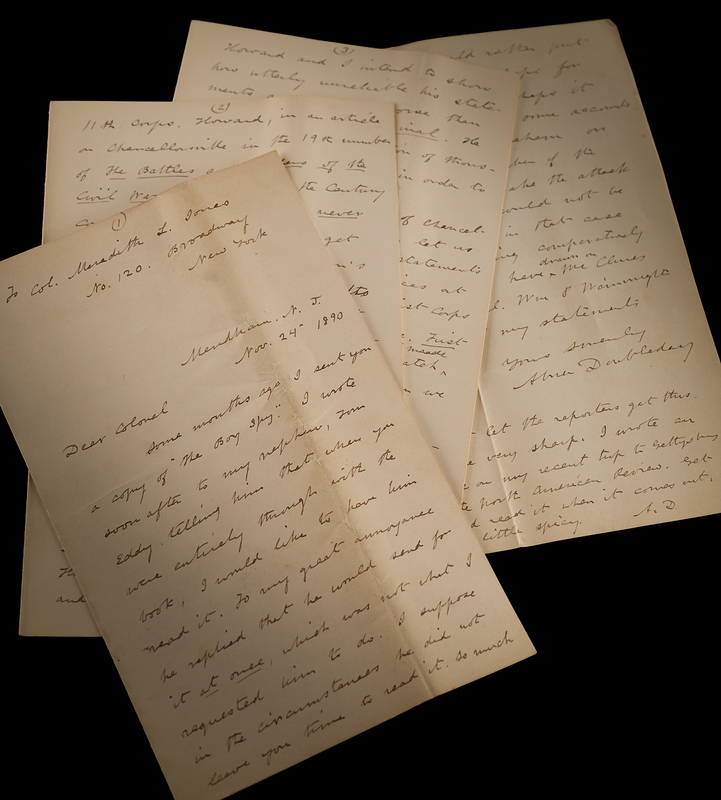 (1)
To Col. Meredith L. Jones
No. 120. Broadway
New York
Mendham. N. J.
Nov. 24th 1890
Dear Colonel
Some months ago I sent you
a copy of "The Boy Spy". I wrote
soon after to my nephew, Tom
Eddy, telling him that when you
were entirely through with the
book, I would like to have him
read it. To my great annoyance
he replied that he would send for
it at once, which was not what I
requested him to do. I suppose
in the circumstances he did not
leave you time to read it. So much
(2)
11th Corps. Howard, in an article
on Chancellorsville in the 19th number
of The Battles of the
Civil War the Century
never
get
(3)
Howard and I intend to show
how utterly unreliable his state-
ments than
He
of thous-
in order to
of Chancel-
let us
statements
at
Corps
First
made
we
rather put
for
it
some accounts
on
if the
the attack
would not be
in that case
comparatively
drawn on
have Mc Clures
Wm P Wainwright
my statements
Yours sincerely
Abner Doubleday
let the reporters get this.
very sharp. I wrote an
on my recent trip to Gettysburg
North American Review. Get
read it when it comes out.
little spicy. A. D.